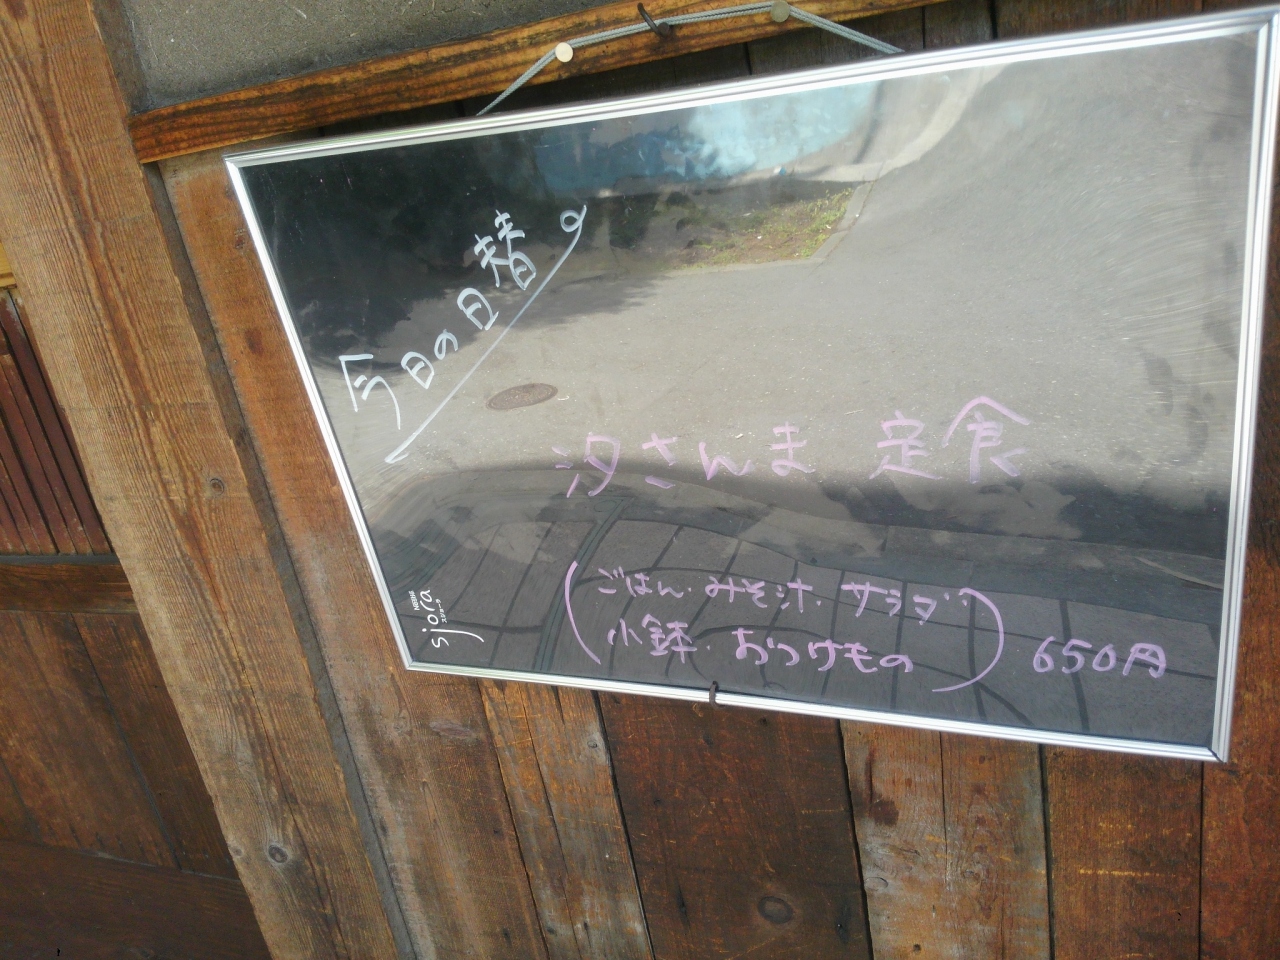 今日の日替
汐さんま 定食
(ごはん・みそ汁・サラダ
小鉢・おつけもの) 650円
Nestlé
sjora
スジョーラ